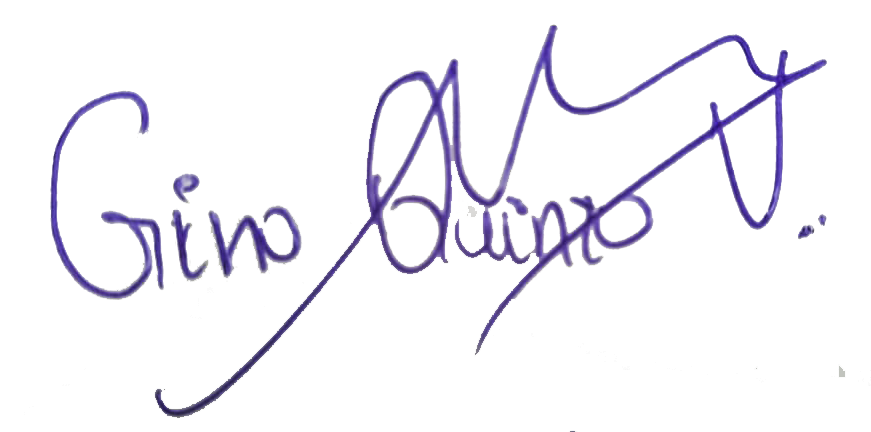 Gino Quinto